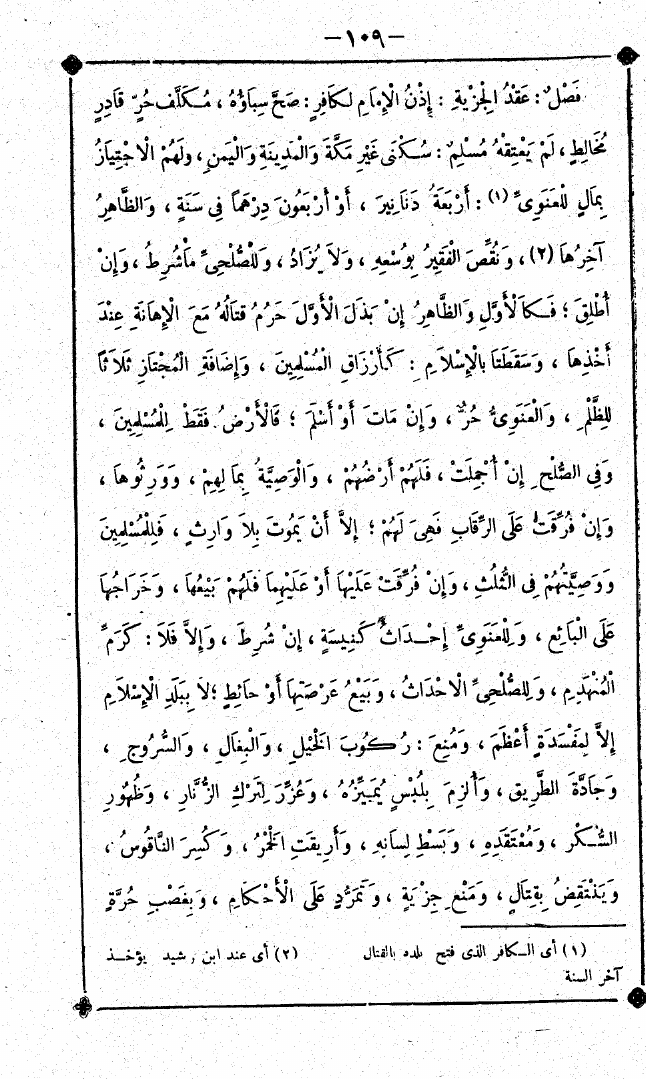 — ١٠٩ —
فَصْلٌ : عَقْدُ الْجِزْيَةِ : إِذْنُ الْإِمَامِ لِكَافِرٍ : صَحَّ سِبَاؤُهُ ، مُكَلَّفٍ حُرٍّ قَادِرٍ
مُخَالِطٍ ، لَمْ يَعْتِقْهُ مُسْلِمٌ : سُكْنَى غَيْرِ مَكَّةَ وَالْمَدِينَةِ وَالْيَمَنِ ، وَلَهُمْ الْاجْتِيَازُ
بِمَالٍ لِلْعَنَوِىِّ (١) : أَرْبَعَةُ دَنَانِيرَ ، أَوْ أَرْبَعُونَ دِرْهَمًا فِى سَنَةٍ ، وَالظَّاهِرُ
آخِرُهَا (٢) ، وَنُقِّصَ الْفَقِيرُ بِوُسْعِهِ ، وَلَا يُزَادُ ، وَلِلصُّلْحِىِّ مَاشُرِطَ ، وَإِنْ
أُطْلِقَ ؛ فَكَالْأَوَّلِ وَالظَّاهِرُ إِنْ بَذَلَ الْأَوَّلَ حَرُمَ قِتَالُهُ مَعَ الْإِهَانَةِ عِنْدَ
أَخْذِهَا ، وَسَقَطَتَا بِالْإِسْلَامِ : كَأَرْزَاقِ الْمُسْلِمِينَ ، وَإِضَافَةِ الْمُجْتَازِ ثَلَاثًا
لِلظُّلْمِ ، وَالْعَنَوِىُّ حُرٌّ ، وَإِنْ مَاتَ أَوْ أَسْلَمَ ؛ فَالْأَرْضُ فَقَطْ لِلْمُسْلِمِينَ ،
وَفِى الصُّلْحِ إِنْ أُجْمِلَتْ ، فَلَهُمْ أَرْضُهُمْ ، وَالْوَصِيَّةُ بِمَا لِهِمْ ، وَوَرِثُوهَا ،
وَإِنْ فُرِّقَتْ عَلَى الرِّقَابِ فَهِىَ لَهُمْ ؛ إِلَّا أَنْ يَمُوتَ بِلَا وَارِثٍ ، فَلِلْمُسْلِمِينَ
وَوَصِيَّتُهُمْ فِى الثُّلُثِ ، وَإِنْ فُرِّقَتْ عَلَيْهَا أَوْ عَلَيْهِمَا فَلَهُمْ بَيْعُهَا ، وَخَرَاجُهَا
عَلَى الْبَائِعِ ، وَلِلْعَنَوِىِّ إِحْدَاثُ كَنِيسَةٍ ، إِنْ شُرِطَ ، وَإِلَّا فَلَا : كَرَمِّ
الْمُنْهَدِمِ ، وَلِلصُّلْحِىِّ الْاحْدَاثُ ، وَبَيْعُ عَرْصَتِهَا أَوْ حَائِطٍ ؛ لَا بِبَلَدِ الْإِسْلَامِ
إِلَّا لِمَفْسَدَةٍ أَعْظَمَ ، وَمُنِعَ : رُكُوبَ الْخَيْلِ ، وَالْبِغَالِ ، وَالسُّرُوجِ ،
وَجَادَّةَ الطَّرِيقِ ، وَأُلْزِمَ بِلُبْسٍ يُمَيِّزُهُ ، وَعُزِّرَ لِتَرْكِ الزُّنَّارِ ، وَظُهُورِ
السُّكْرِ ، وَمُعْتَقَدِهِ ، وَبَسْطِ لِسَانِهِ ، وَأُرِيقَتِ الْخَمْرُ ، وَكُسِرَ النَّاقُوسُ ،
وَيَنْتَقِضُ بِقِتَالٍ ، وَمَنْعِ جِزْيَةٍ ، وَتَمَرُّدٍ عَلَى الْأَحْكَامِ ، وَبِغَصْبِ حُرَّةٍ
(١) أى الكافر الذى فتح بلده بالقتال (٢) أى عند ابن رشيد يؤخذ
آخر السنة